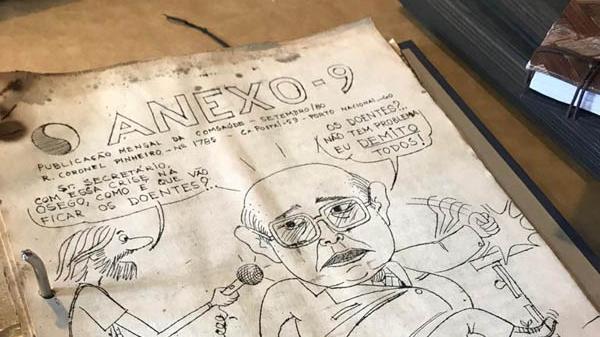 ANEXO-9
PUBLICAÇÃO MENSAL DA COMSAÚDE - SETEMBRO/80
R. CORONEL PINHEIRO - Nº 1785 - CX. POSTAL-59 - PORTO NACIONAL-GO
Sr. SECRETÁRIO,
COM ESSA CRISE NA
OSEGO, COMO É QUE VÃO
FICAR OS DOENTES?..
OS DOENTES?..
NÃO TEM PROBLEMA
EU DEMITO
TODOS!